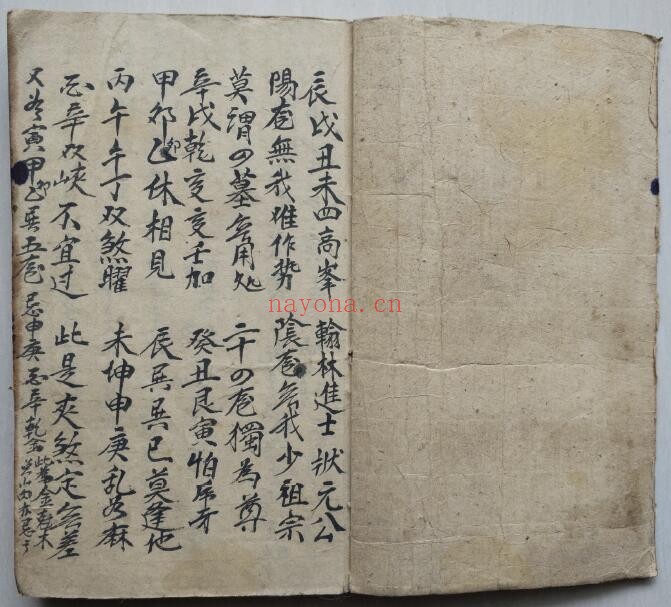 辰戌丑未四高峯 翰林進士狀元公
陽龙無我难作势 陰龙无我少祖宗
莫谓四墓无用处 二十四龙獨為尊
辛戌乾亥亥壬加 癸丑艮寅怕虎牙
甲卯卯乙休相見 辰巽巽巳莫逢他
丙午午丁双煞曜 未坤申庚乱如麻
酉辛双峡不宜过 此是夾煞定无差
又為寅甲卯乙巽五龙忌申庚酉辛乾金 此為金尅木
nayona.cn